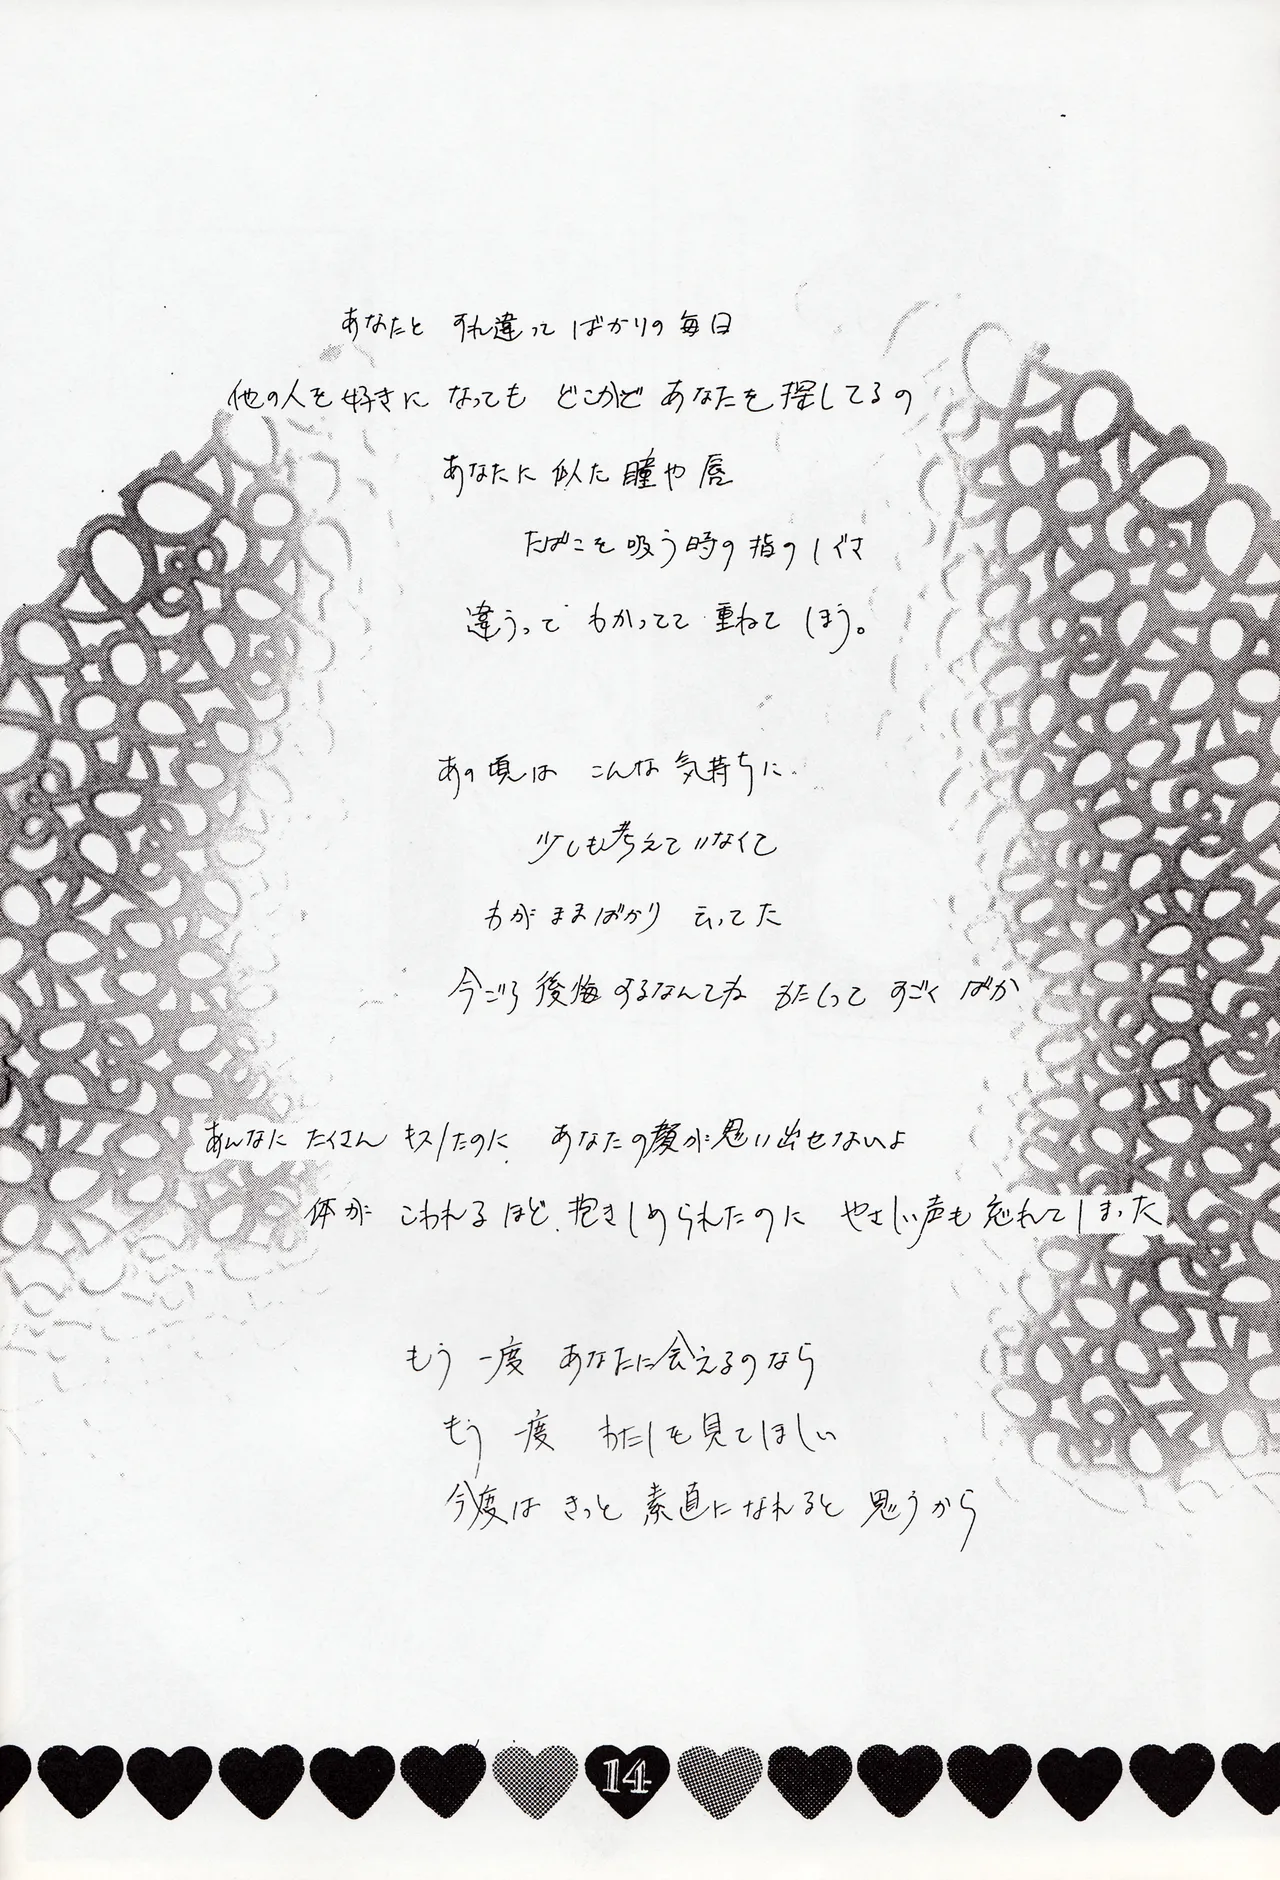 あなたと すれ違ってばかりの毎日
他の人を好きに なっても どこかで あなたを 探してるの
あなたに 似た 瞳や 唇
たばこを 吸う時の 指の しぐさ
違うって わかってて 重ねて しまう。
あの頃は こんな 気持ちに
少しも考えていなくて
わがままばかり 云ってた
今ごろ 後悔するなんてね わたしって すごく ばか
あんなに たくさん キスしたのに あなたの顔が思い出せないよ
体が こわれるほど 抱きしめられたのに やさしい声も 忘れてしまった
もう 一度 あなたに会えるのなら
もう 一度 わたしを 見てほしい
今度は きっと 素直になれると 思うから
14